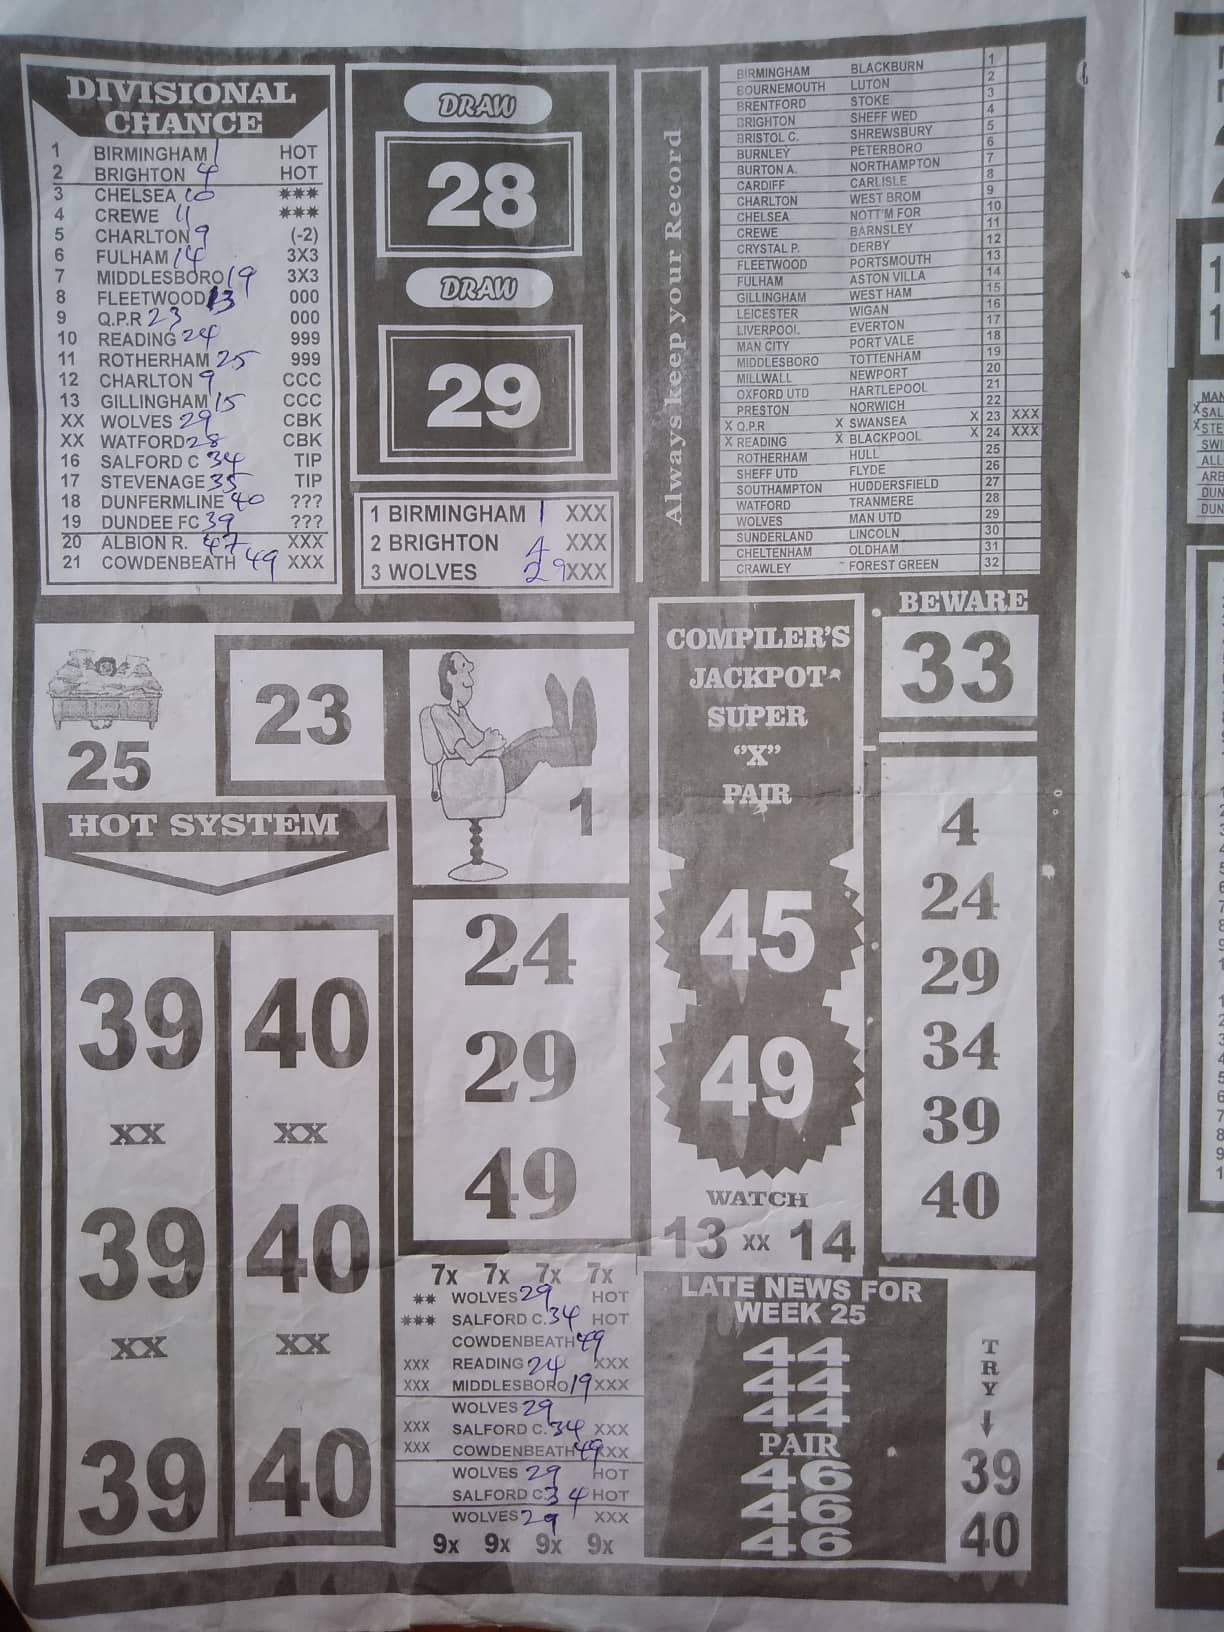 DIVISIONAL
CHANCE
1 BIRMINGHAM 1 HOT
2 BRIGHTON 4 HOT
3 CHELSEA 10 ***
4 CREWE 11 ***
5 CHARLTON 9 (-2)
6 FULHAM 14 3X3
7 MIDDLESBORO 19 3X3
8 FLEETWOOD 13 000
9 Q.P.R 23 000
10 READING 24 999
11 ROTHERHAM 25 999
12 CHARLTON 9 CCC
13 GILLINGHAM 15 CCC
XX WOLVES 29 CBK
XX WATFORD 28 CBK
16 SALFORD C 34 TIP
17 STEVENAGE 35 TIP
18 DUNFERMLINE 40 ???
19 DUNDEE FC 39 ???
20 ALBION R. 47 XXX
21 COWDENBEATH 49 XXX
DRAW
28
DRAW
29
1 BIRMINGHAM 1 XXX
2 BRIGHTON 4 XXX
3 WOLVES 29 XXX
Always keep your Record
BIRMINGHAM BLACKBURN 1
BOURNEMOUTH LUTON 2
BRENTFORD STOKE 3
BRIGHTON SHEFF WED 4
BRISTOL C. SHREWSBURY 5
BURNLEY PETERBORO 6
BURTON A. NORTHAMPTON 7
CARDIFF CARLISLE 8
CHARLTON WEST BROM 9
CHELSEA NOTT'M FOR 10
CREWE BARNSLEY 11
CRYSTAL P. DERBY 12
FLEETWOOD PORTSMOUTH 13
FULHAM ASTON VILLA 14
GILLINGHAM WEST HAM 15
LEICESTER WIGAN 16
LIVERPOOL EVERTON 17
MAN CITY PORT VALE 18
MIDDLESBORO TOTTENHAM 19
MILLWALL NEWPORT 20
OXFORD UTD HARTLEPOOL 21
PRESTON NORWICH 22
X Q.P.R X SWANSEA X 23 XXX
X READING X BLACKPOOL X 24 XXX
ROTHERHAM HULL 25
SHEFF UTD FLYDE 26
SOUTHAMPTON HUDDERSFIELD 27
WATFORD TRANMERE 28
WOLVES MAN UTD 29
SUNDERLAND LINCOLN 30
CHELTENHAM OLDHAM 31
CRAWLEY FOREST GREEN 32
25
23
HOT SYSTEM
39 40
XX XX
39 40
XX XX
39 40
1
24
29
49
7x 7x 7x 7x
** WOLVES 29 HOT
*** SALFORD C. 34 HOT
COWDENBEATH 49
XXX READING 24 XXX
XXX MIDDLESBORO 19 XXX
WOLVES 29
XXX SALFORD C. 34 XXX
XXX COWDENBEATH 49 XXX
WOLVES 29 HOT
SALFORD C 34 HOT
WOLVES 29 XXX
9x 9x 9x 9x
COMPILER'S
JACKPOT
SUPER
"X"
PAIR
45
49
WATCH
13 XX 14
BEWARE
33
4
24
29
34
39
40
LATE NEWS FOR
WEEK 25
44
44
44
PAIR
46
46
46
TRY
39
40
MAN
X SAL
X STE
SWI
ALL
ARB
DUN
DUN